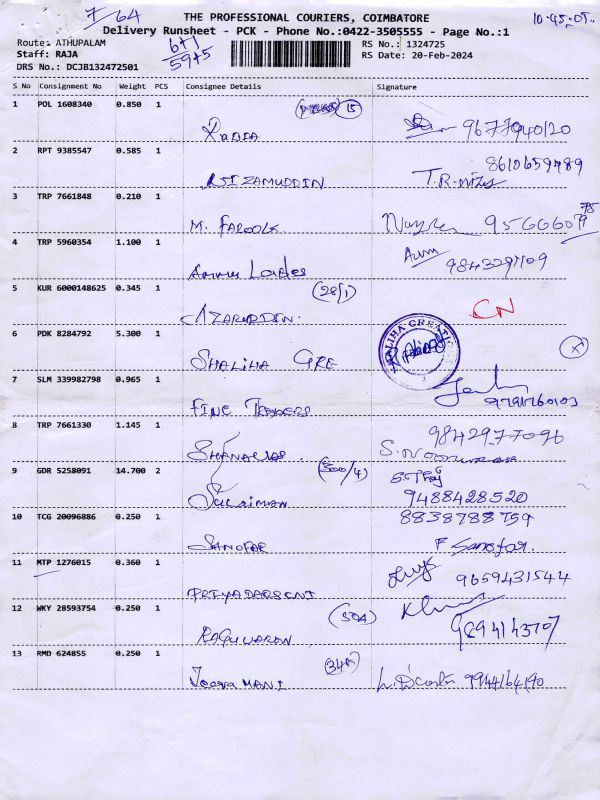 7/64
THE PROFESSIONAL COURIERS, COIMBATORE
10-45
Delivery Runsheet - PCK - Phone No.:0422-3505555 - Page No.:1
Route: ATHUPALAM
6+1
59+5
RS No.: 1324725
Staff: RAJA
RS Date: 20-Feb-2024
DRS No.: DCJB132472501
S No Consignment No Weight PCS Consignee Details Signature
1 POL 1608340 0.850 1 15
9677940120
2 RPT 9385547 0.585 1
8610659489
NIZAMUDDIN
3 TRP 7661848 0.210 1
M. FAROOK
4 TRP 5960354 1.100 1
9843291109
5 KUR 6000148625 0.345 1 (28/1)
AZARUDDIN.
CN
6 PDK 8284792 5.300 1
SHALIHA CRE
7 SLM 339982798 0.965 1
FINE TRADERS
8 TRP 7661330 1.145 1
9842977096
9 GDR 5258091 14.700 2 (500/4)
Sulaiman
9488428520
10 TCG 20096886 0.250 1
8838788759
SANOFAR
F Sanofar.
11 MTP 1276015 0.360 1
9659431544
PRIYADARSINI
12 WKY 28593754 0.250 1 (50A)
RAGUVARAN
13 RMD 624855 0.250 1 (34A)
Jeeva MANI
9944164190